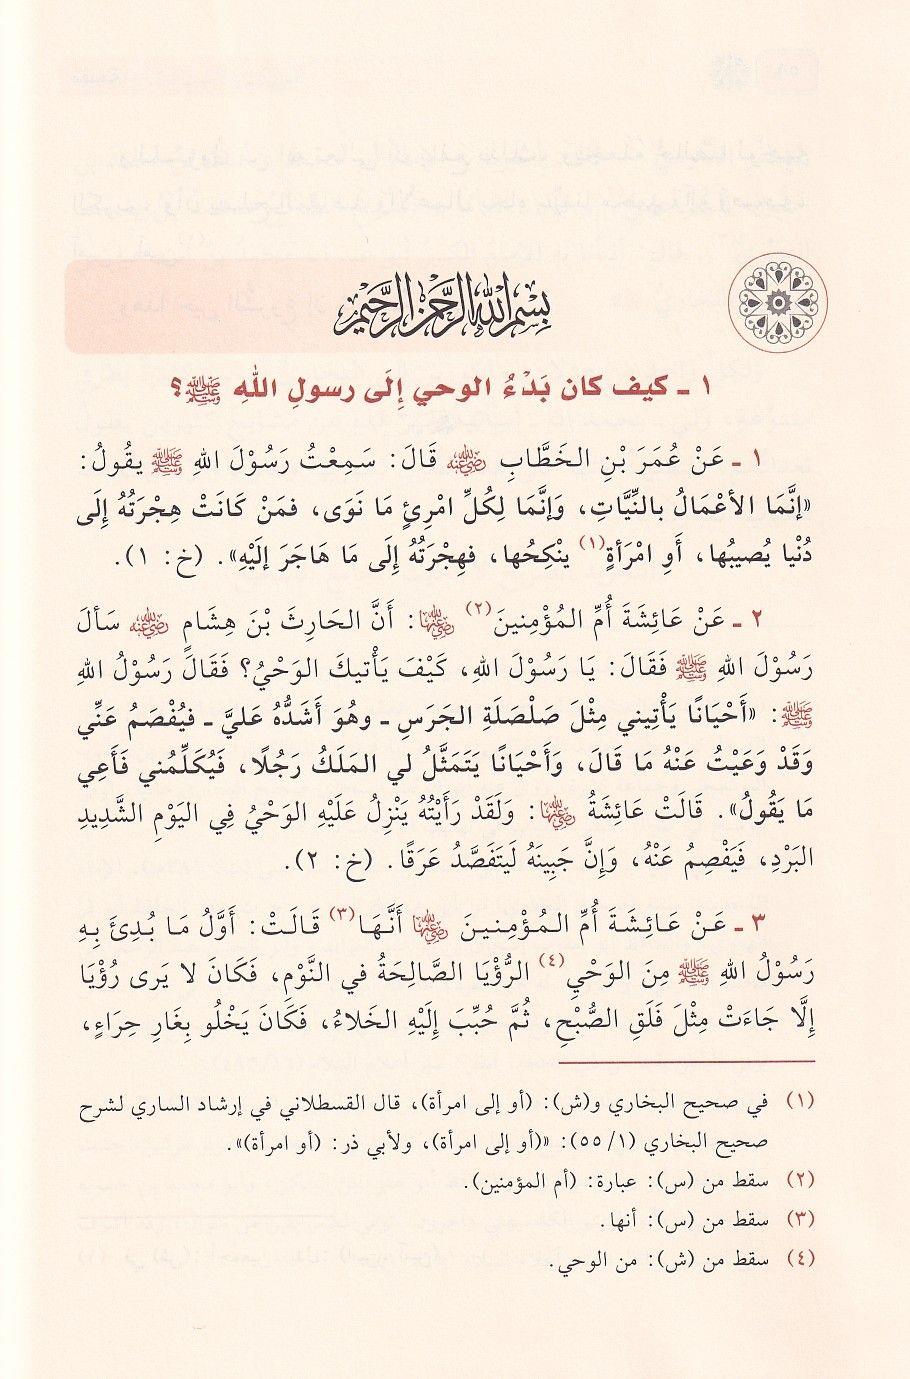 بِسْمِ اللَّهِ الرَّحْمَنِ الرَّحِيمِ
١ ـ كيف كان بَدْءُ الوحي إِلَى رسولِ اللهِ ﷺ؟
١ ـ عَنْ عُمَرَ بْنِ الخَطَّابِ رضي الله عنه قَالَ: سَمِعْتُ رَسُوْلَ اللهِ ﷺ يقُولُ:
«إنَّمَا الأعْمَالُ بالنِّيَّاتِ، وَإنَّمَا لِكُلِّ امْرِئٍ مَا نَوَى، فمَنْ كَانَتْ هِجْرَتُهُ إلَى
دُنْيا يُصيبُها، أَوِ امْرَأةٍ(١) ينْكِحُها، فهِجْرَتُهُ إلَى مَا هَاجَرَ إليْهِ». (خ: ١).
٢ ـ عَنْ عَائِشَةَ أُمِّ المُؤْمِنينَ(٢) رضي الله عنها: أَنَّ الحَارِثَ بْنَ هِشَامٍ رضي الله عنه سَألَ
رَسُوْلَ اللهِ ﷺ فَقَالَ: يَا رَسُوْلَ اللهِ، كَيْفَ يَأْتيكَ الوَحْيُ؟ فَقَالَ رَسُوْلُ اللهِ
ﷺ: «أَحْيَانًا يَأْتِيني مِثْلَ صَلْصَلَةِ الجَرَسِ ـ وهُوَ أَشَدُّهُ عَليَّ ـ فيُفْصَمُ عَنِّي
وَقَدْ وَعَيْتُ عَنْهُ مَا قَالَ، وَأَحْيَانًا يَتَمَثَّلُ لي المَلَكُ رَجُلًا، فَيُكَلِّمُني فَأَعِي
مَا يَقُولُ». قَالَتْ عَائِشَةُ رضي الله عنها: وَلَقَدْ رَأَيْتُهُ يَنْزِلُ عَلَيْهِ الوَحْيُ فِي اليَوْمِ الشَّدِيدِ
البَرْدِ، فَيَفْصِمُ عَنْهُ، وَإِنَّ جَبِينَهُ لَيَتَفَصَّدُ عَرَقًا. (خ: ٢).
٣ ـ عَنْ عَائِشَةَ أُمِّ المُؤْمِنينَ رضي الله عنها أَنَّهَا(٣) قَالَتْ: أَوَّلُ مَا بُدِئَ بِهِ
رَسُوْلُ اللهِ ﷺ مِنَ الوَحْيِ(٤) الرُّؤْيَا الصَّالِحَةُ في النَّوْمِ، فَكَانَ لا يَرى رُؤْيَا
إِلَّا جَاءَتْ مِثْلَ فَلَقِ الصُّبْحِ، ثُمَّ حُبِّبَ إِلَيْهِ الخَلاءُ، فَكَانَ يَخْلُو بِغَارِ حِرَاءٍ،
(١) في صحيح البخاري و(ش): (أو إلى امرأة)، قال القسطلاني في إرشاد الساري لشرح
صحيح البخاري (١/ ٥٥): «(أو إلى امرأة)، ولأبي ذر: (أو امرأة)».
(٢) سقط من (س): عبارة: (أم المؤمنين).
(٣) سقط من (س): أنها.
(٤) سقط من (ش): من الوحي.